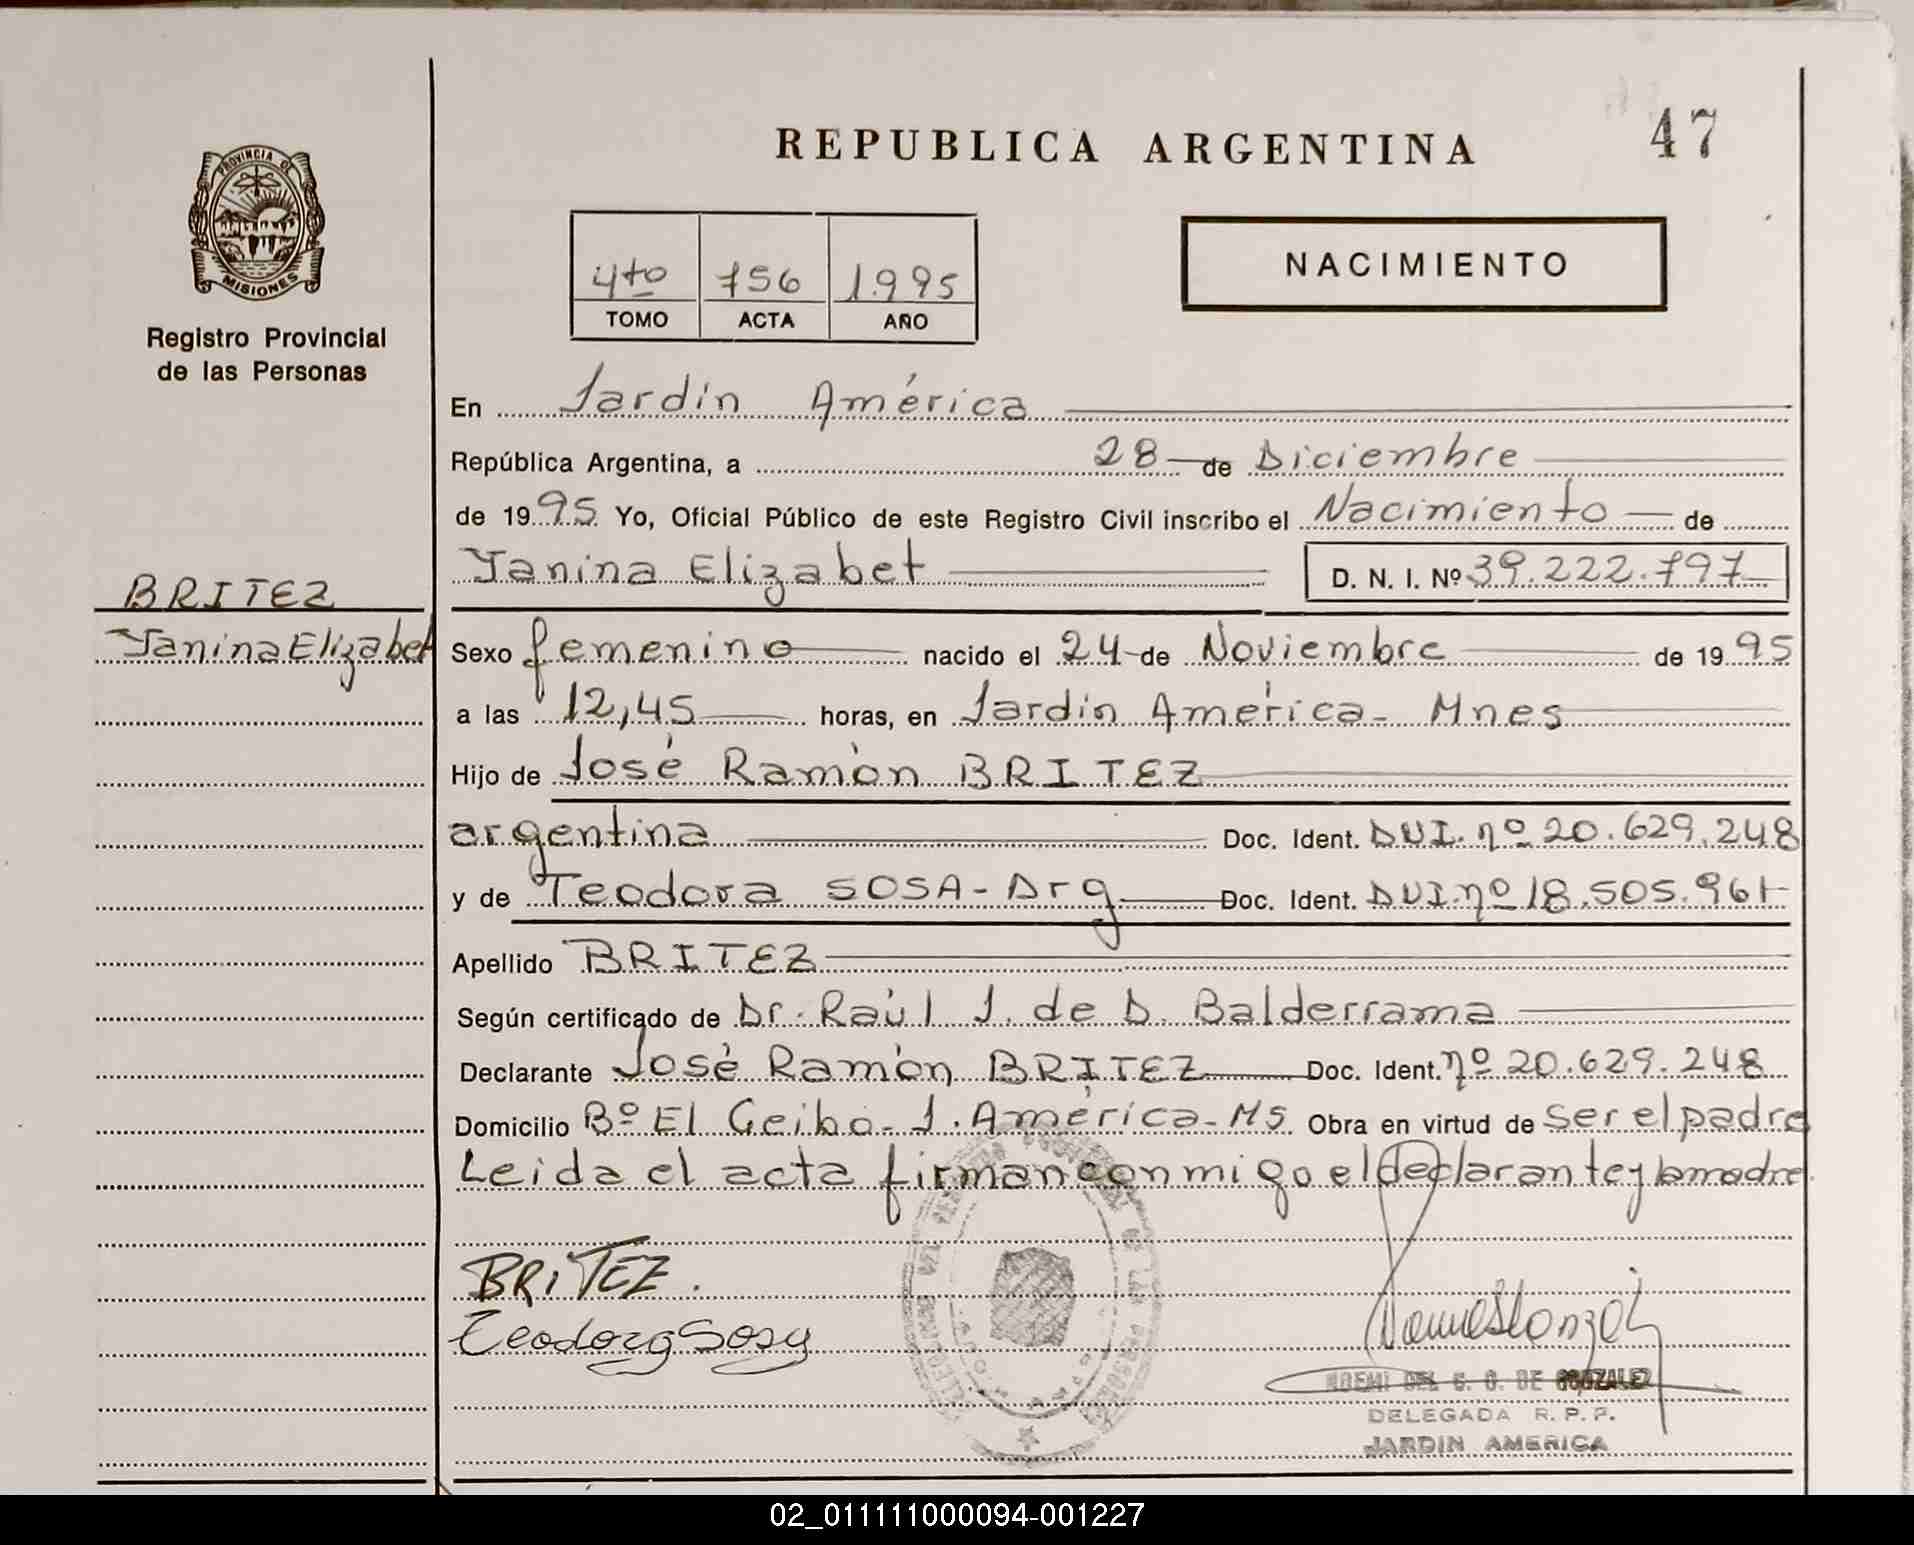 REPUBLICA ARGENTINA
47
PROVINCIA DE
MISIONES
Registro Provincial
de las Personas
4to 756 1.995
TOMO ACTA AÑO
NACIMIENTO
En Jardín América
República Argentina, a 28 de Diciembre
de 1995. Yo, Oficial Público de este Registro Civil inscribo el Nacimiento de
Yanina Elizabet D. N. I. Nº 39.222.797
BRITEZ
Yanina Elizabet
Sexo femenino nacido el 24 de Noviembre de 1995
a las 12,45 horas, en Jardín América- Mnes
Hijo de José Ramòn BRITEZ
argentina Doc. Ident. DUI. nº 20.629.248
y de Teodora SOSA - Arg Doc. Ident. DUI. nº 18.505.961
Apellido BRITEZ
Según certificado de Dr. Raúl J. de D. Balderrama
Declarante José Ramòn BRITEZ Doc. Ident. nº 20.629.248
Domicilio Bº El Ceibo- J. América- MS Obra en virtud de ser el padre
Leida el acta firman conmigo el declarante y la madre
BRITEZ.
Teodora Sosa
DE GONZALEZ
DELEGADA R.P.P.
JARDIN AMERICA
02_011111000094-001227